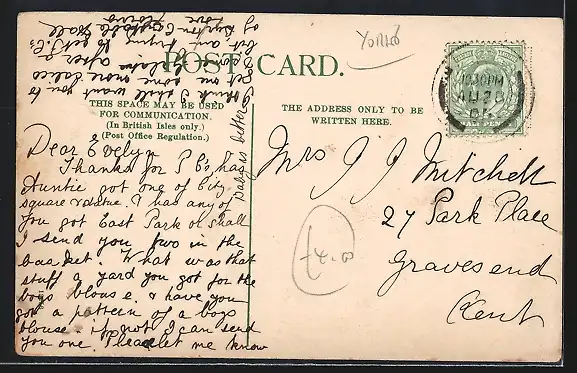 POST CARD.
THIS SPACE MAY BE USED
FOR COMMUNICATION.
(In British Isles only.)
(Post Office Regulation.)
THE ADDRESS ONLY TO BE
WRITTEN HERE.
Dear Evelyn
Thanks for P Cs has
Auntie got one of City
square & statue, & has any of
you got East Park or shall
I send you two in the
basket. What was that
stuff a yard you got for the
boys blouse, & have you
got a pattern of a boys
blouse, if not I can send
you one. Please let me know
I think I shall want you to
get me some more
after
but am trying to get J. Cs
of
love
baby is better
Mrs J J Mitchell
27 Park Place
Gravesend
Kent
Yorks
£4.00
10.30PM
AU 28